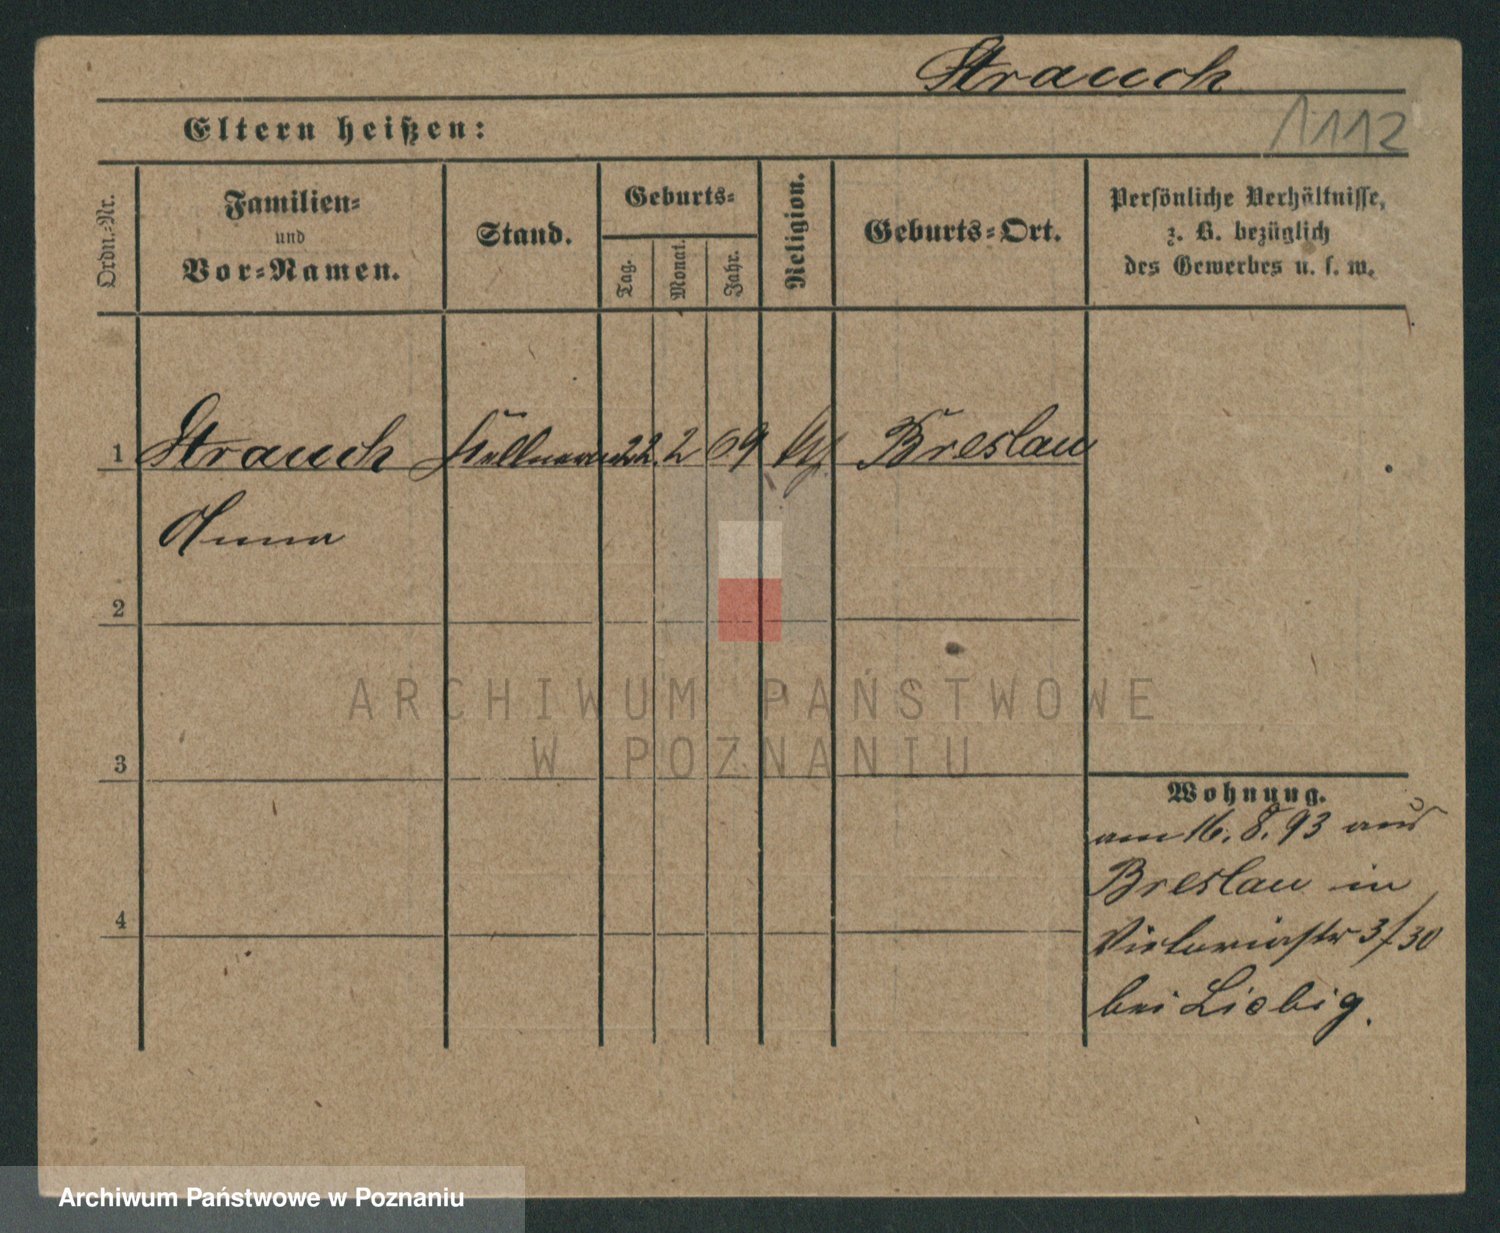 Strauch
1112
Eltern heißen:
Ordn.-Nr.
Familien-
und
Vor-Namen.
Stand.
Geburts-
Tag.
Monat.
Jahr.
Religion.
Geburts-Ort.
Persönliche Verhältnisse,
z. B. bezüglich
des Gewerbes u. s. w.
1 Strauch 22. 2 69 Breslau
Anna
2
3
4
Wohnung.
am 16. 8. 93 aus
Breslau in
Victoriastr 3/30
bei Liebig.
ARCHIWUM PAŃSTWOWE
W POZNANIU
Archiwum Państwowe w Poznaniu